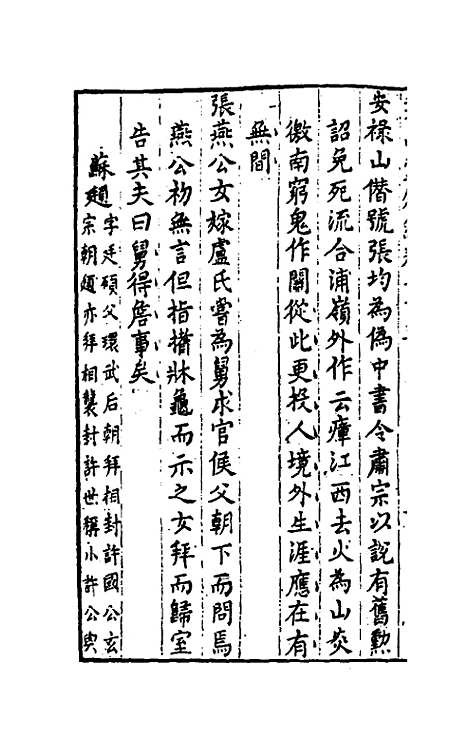 安祿山僭號張均為偽中書令肅宗以說有舊勲
詔免死流合浦嶺外作云瘴江西去火為山炎
徼南窮鬼作關從此更投人境外生涯應在有
無間
張燕公女嫁盧氏嘗為舅求官侯父朝下而問焉
燕公初無言但指搘牀龜而示之女拜而歸室
告其夫曰舅得詹事矣
蘇頲字廷碩父瓌武后朝拜相封許國公玄
宗朝頲亦拜相襲封許世稱小許公與